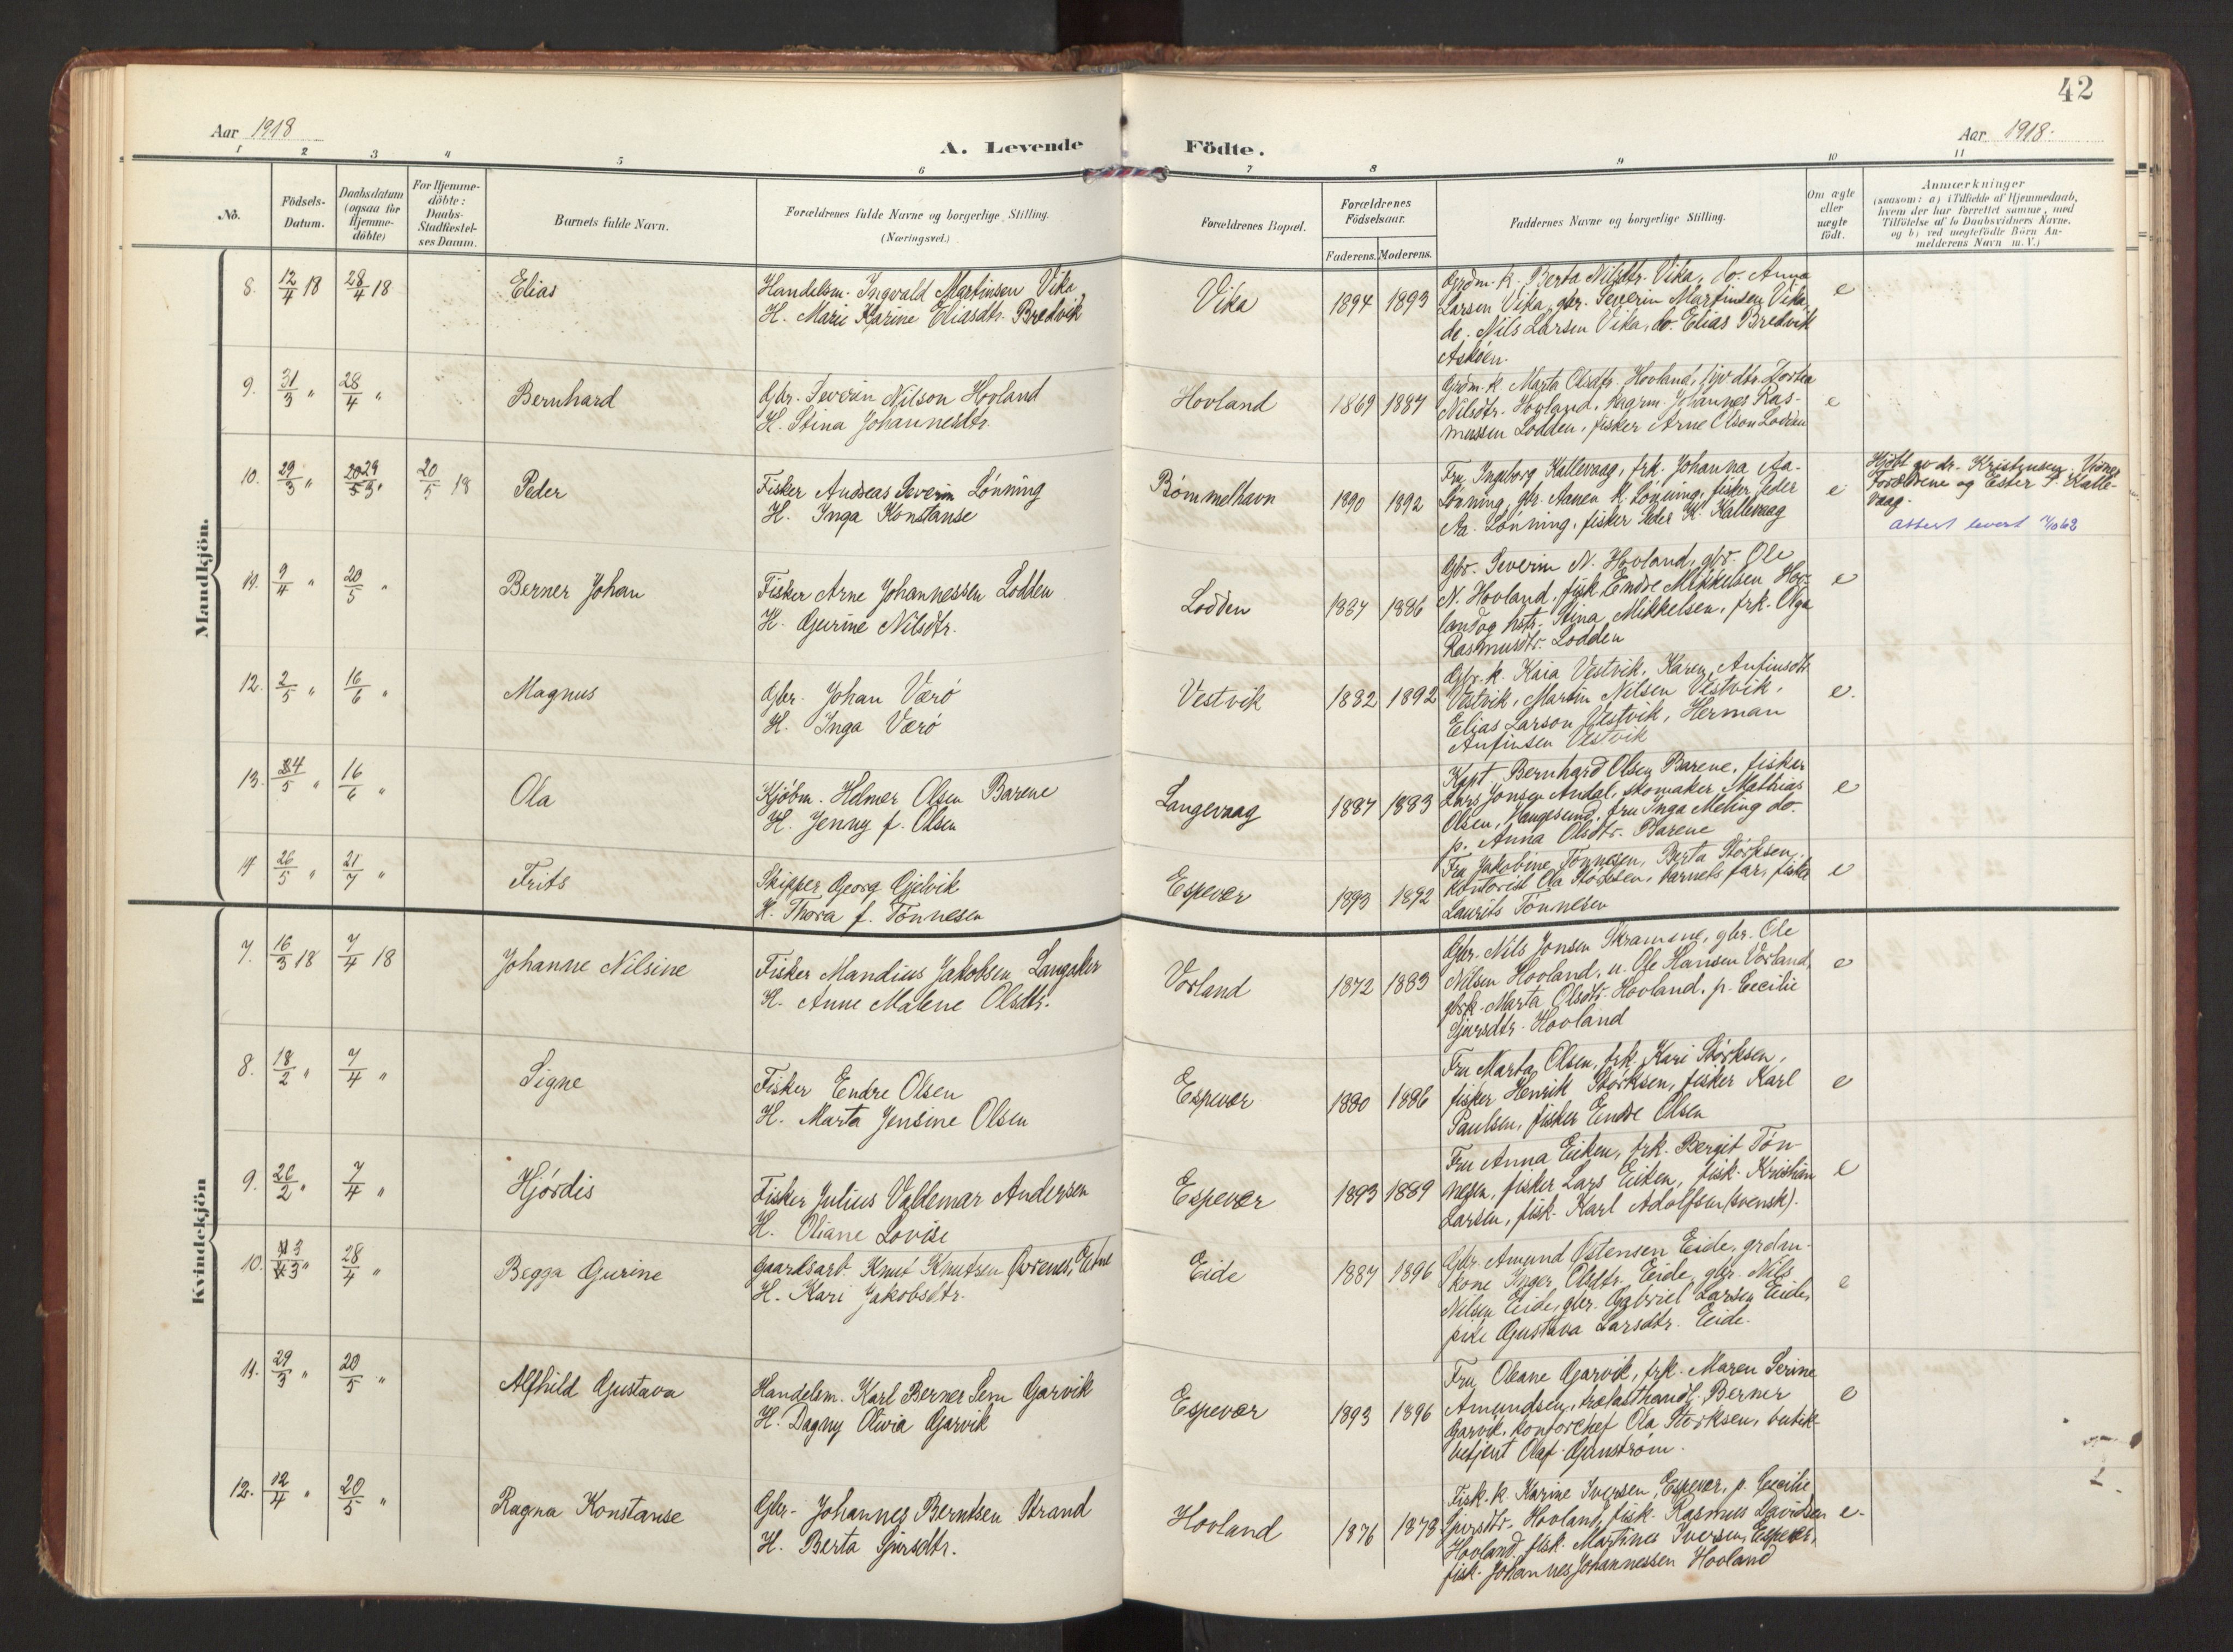 42
Aar 1918
A. Levende Födte.
Aar 1918.
1 2 3 4 5 6 7 8 9 10 11
No.
Födsels-Datum.
Daabsdatum (ogsaa for Hjemme-döbte)
For Hjemme-döbte: Daabs-Stadfæstel-ses Datum.
Barnets fulde Navn.
Forældrenes fulde Navne og borgerlige Stilling.
(Næringsvei.)
Forældrenes Bopæl.
Forældrenes Födselsaar.
Faderens. Moderens.
Faddernes Navne og borgerlige Stilling.
Om ægte eller uægte födt.
Anmærkninger
(saasom: a) i Tilfælde af Hjemmedaab,
hvem der har forrettet samme, med
Tilföielse af to Daabsvidners Navne.
og b) ved uægtefödte Börn An-
melderens Navn m. V.)
Mandkjön.
8. 12/4 18 28/4 18 Elias
Handelsm. Ingvald Martinsen Vika
H. Marie Karine Eliasdtr. Bredvik
Vika 1894 1893
Grdm. k. Berta Nilsdtr. Vika, do. Anna
Larsen Vika, gbr. Severin Martinsen Vika,
do. Nils Larsen Vika, do. Elias Bredvik
Askøen.
e
9. 31/3 " 28/4 " Bernhard
Gbr. Severin Nilson Hovland
H. Stina Johannesdtr.
Hovland 1869 1887
Grdm. k. Marta Olsdtr. Hovland,
Nilsdtr. Hovland, Johannes Ras-
mussen Lodden, fisker Arne Olson Lodden
e
10. 29/3 " 29/3 " 20/5 18 Peder
Fisker Andreas Severin Lønning
H. Inga Konstanse
Bømmelhavn 1890 1892
Fru Ingeborg Kallevaag, frk. Johanna Aa.
Lønning, gbr. Aamen K. Lønning, fisker Peder
Aa. Lønning, fisker Peder K. Kallevaag
e
Hjdbt av dr. Kristensen. Vidner
Forældrene og Ester P. Kalle-
vaag.
attest levert
11. 9/4 " 20/5 " Berner Johan
Fisker Arne Johannessen Lodden
H. Gurine Nilsdtr.
Lodden 1887 1886
Gbr. Severin N. Hovland, gbr. Ole
N. Hovland, fisk. Endre Mikkelsen Hov-
land og hstr. Stina Mikkelsen, frk. Olga
Rasmusdtr. Lodden
e
12. 2/5 " 16/6 " Magnus
Gbr. Johan Værø
H. Inga Værø
Vestvik 1882 1892
Gbr. k. Kaia Vestvik, Karen Anfinsdtr.
Vestvik, Martin Nilsen Vestvik,
Elias Larson Vestvik, Herman
Anfinsen Vestvik
e.
13. 24/5 " 16/6 " Ola
Kjøbm. Helmer Olsen Barene
H. Jenny f. Olsen
Langevaag 1887 1883
Kapt. Bernhard Olsen Barene, fisker
Lars Jonsen Andal, skomaker Mathias
Olsen, Haugesund, fru Inga Meling do.
p. Anna Olsdtr. Barene
e
14 26/5 " 21/7 " Frits
Skipper Georg Gjelvik
H. Thora f. Tønnesen
Espevær 1893 1892
Fru Jakobine Tønnesen, Berta Størksen,
kontorist Ola Størksen, barnets far, fisker
Laurits Tønnesen
e
Kvindekjön
7. 16/3 18 7/4 18 Johanne Nilsine
Fisker Mandius Jakobsen Langaker
H. Anne Malene Olsdtr.
Vorland 1872 1883
Gbr. Nils Jonsen Skramme, gbr. Ole
Nilsen Hovland, u. Ole Hansen Vorland,
gbrk. Marta Olsdtr. Hovland, p. Cecilie
Sjursdtr. Hovland
e
8. 18/2 " 7/4 " Signe
Fisker Endre Olsen
H. Marta Jensine Olsen
Espevær 1880 1886
Fru Marta Olsen, frk. Kari Størksen,
fisker Henrik Størksen, fisker Karl
Paulsen, fisker Endre Olsen
e
9. 26/2 " 7/4 " Hjørdis
Fisker Julius Valdemar Andersen
H. Oliane Lovise
Espevær 1893 1889
Fru Anna Eiken, frk. Bergit Tøn-
nesen, fisker Lars Eiken, fisk. Kristian
Larsen, fisk. Karl Adolfsen (svensk).
e
10. 13/3 " 28/4 " Begga Gurine
Gaardsarb. Knut Knutsen Grenes, Etne
H. Kari Jakobsdtr.
Eide 1887 1896
Gbr. Amund Østensen Eide, grdm.-
kone Inger Olsdtr. Eide, gbr. Nils
Nilsen Eide, gbr. Gabriel Larsen Eide,
pike Gustava Larsdtr. Eide.
e
11. 29/3 " 20/5 " Alfhild Gustava
Handelsm. Karl Berner Sem Garvik
H. Dagny Olivia Garvik
Espevær 1893 1896
Fru Oleane Garvik, frk. Maren Serine
Amundsen, trælasthandl. Berner
Garvik, kontorchef Ola Størksen, butik-
betjent Olaf Granstrøm.
e
12. 12/4 " 20/5 " Ragna Konstanse
Gbr. Johannes Berntsen Strand
H. Berta Sjursdtr.
Hovland 1876 1878
Fisk. k. Karine Iversen, Espevær, p. Cecilie
Sjursdtr. Hovland, fisk. Rasmus Davidsen
Hovland, fisk. Martines Iversen, Espevær,
fisk. Johannes Johannessen Hovland
e.